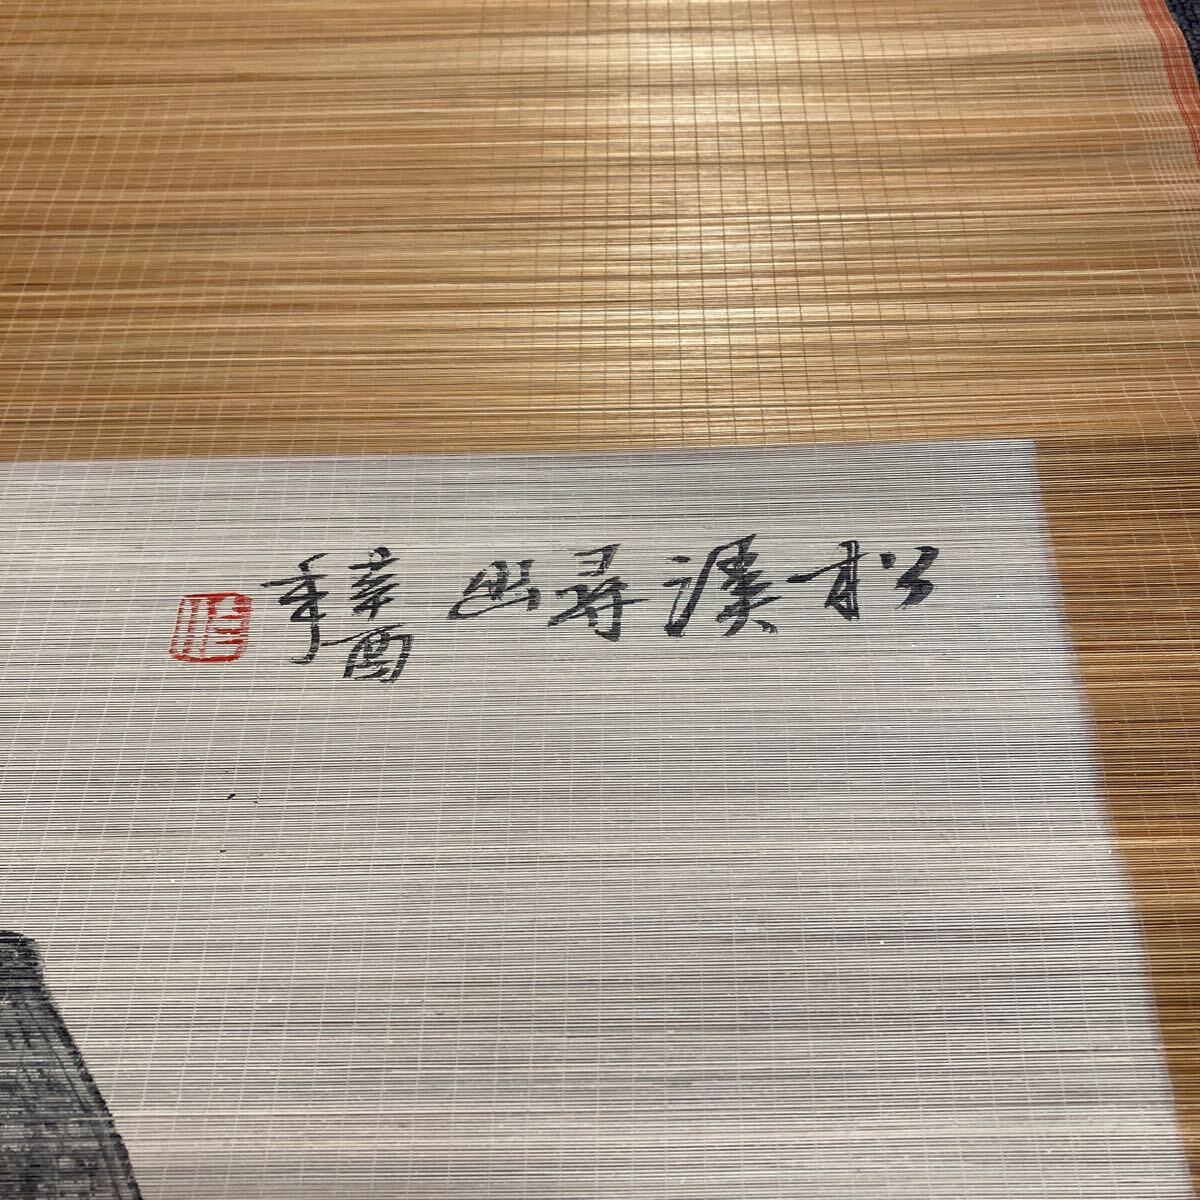 松溪尋幽
辛酉年